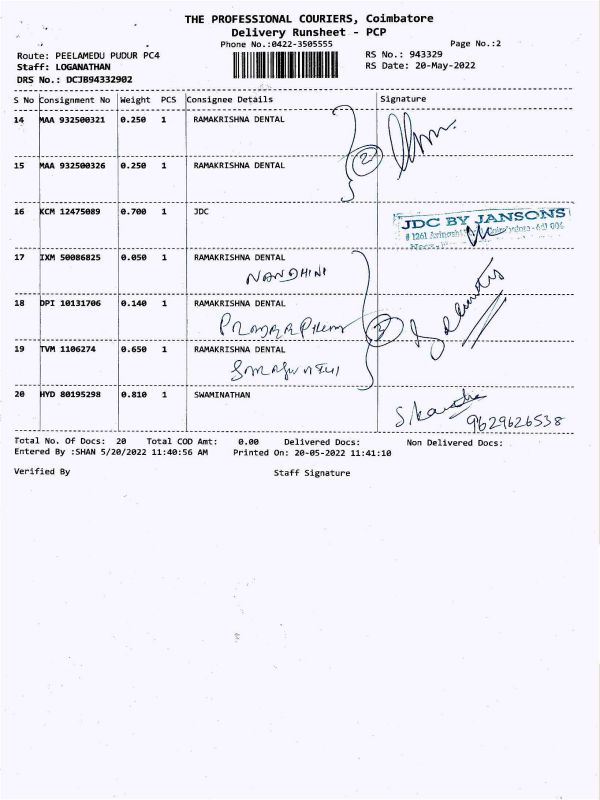 THE PROFESSIONAL COURIERS, Coimbatore
Delivery Runsheet - PCP
Phone No.:0422-3505555 Page No.:2
Route: PEELAMEDU PUDUR PC4 RS No.: 943329
Staff: LOGANATHAN RS Date: 20-May-2022
DRS No.: DCJB94332902
S No Consignment No Weight PCS Consignee Details Signature
14 MAA 932500321 0.250 1 RAMAKRISHNA DENTAL
2
15 MAA 932500326 0.250 1 RAMAKRISHNA DENTAL
16 KCM 12475089 0.700 1 JDC
JDC BY JANSONS
# 1261
17 IXM 50086825 0.050 1 RAMAKRISHNA DENTAL
NANDHINI
18 DPI 10131706 0.140 1 RAMAKRISHNA DENTAL
3
19 TVM 1106274 0.650 1 RAMAKRISHNA DENTAL
20 HYD 80195298 0.810 1 SWAMINATHAN
9629626538
Total No. Of Docs: 20 Total COD Amt: 0.00 Delivered Docs: Non Delivered Docs:
Entered By :SHAN 5/20/2022 11:40:56 AM Printed On: 20-05-2022 11:41:10
Verified By Staff Signature